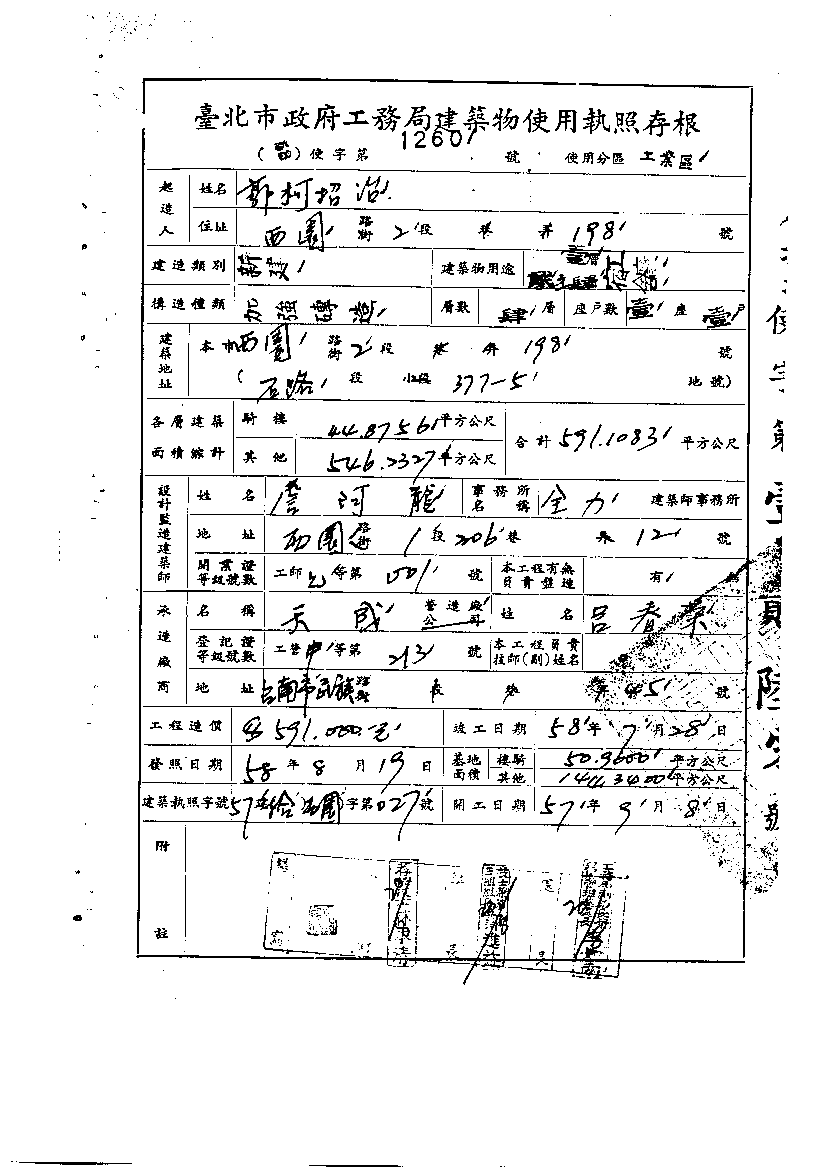 臺北市政府工務局建築物使用執照存根
1260
( )使字第 號 使用分區 工業區
起造人 姓名 鄭柯招治
住址 西園 路街 2 段 巷 弄 198 號
建造類別 新建 建築物用途
構造種類 加強磚造 層數 肆 層 座戶數 壹 座 壹 戶
建築地址 本市西園 路街 2 段 巷 弄 198 號
( 石路 段 小段 377-5 地號)
各層建築面積總計 騎樓 44.8756 平方公尺 合計 591.1083 平方公尺
其他 546.2327 平方公尺
設計監造建築師 姓名 詹河龍 事務所名稱 全力 建築師事務所
地址 西園 路街 1 段 206 巷 弄 12 號
開業證等級號數 工師 等第 號 本工程有無負責監造 有 無
承造廠商 名稱 天成 營造廠公司 姓名 呂春榮
登記證等級號數 工營 甲 等第 213 號 本工程負責技師(副)姓名
地址 台南市民族路 段 巷 弄 45 號
工程造價 591.000.元 竣工日期 58 年 7 月 28 日
發照日期 58 年 8 月 19 日 基地面積 樓騎 50.9600 平方公尺
其他 144.3400 平方公尺
建築執照字號 57 西園 字第 027 號 開工日期 57 年 9 月 8 日
附註